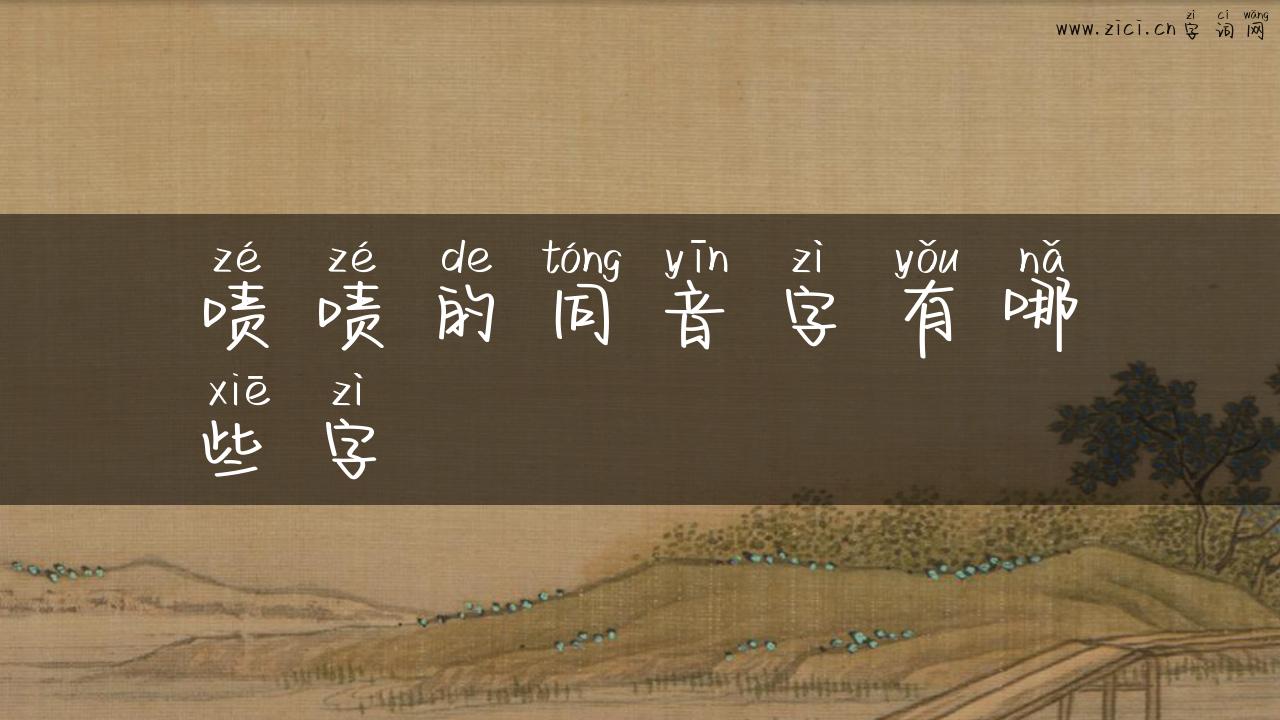 zì cí wǎng
www.zici.cn 字词网
zé zé de tóng yīn zì yǒu nǎ
啧啧的同音字有哪
xiē zì
些字